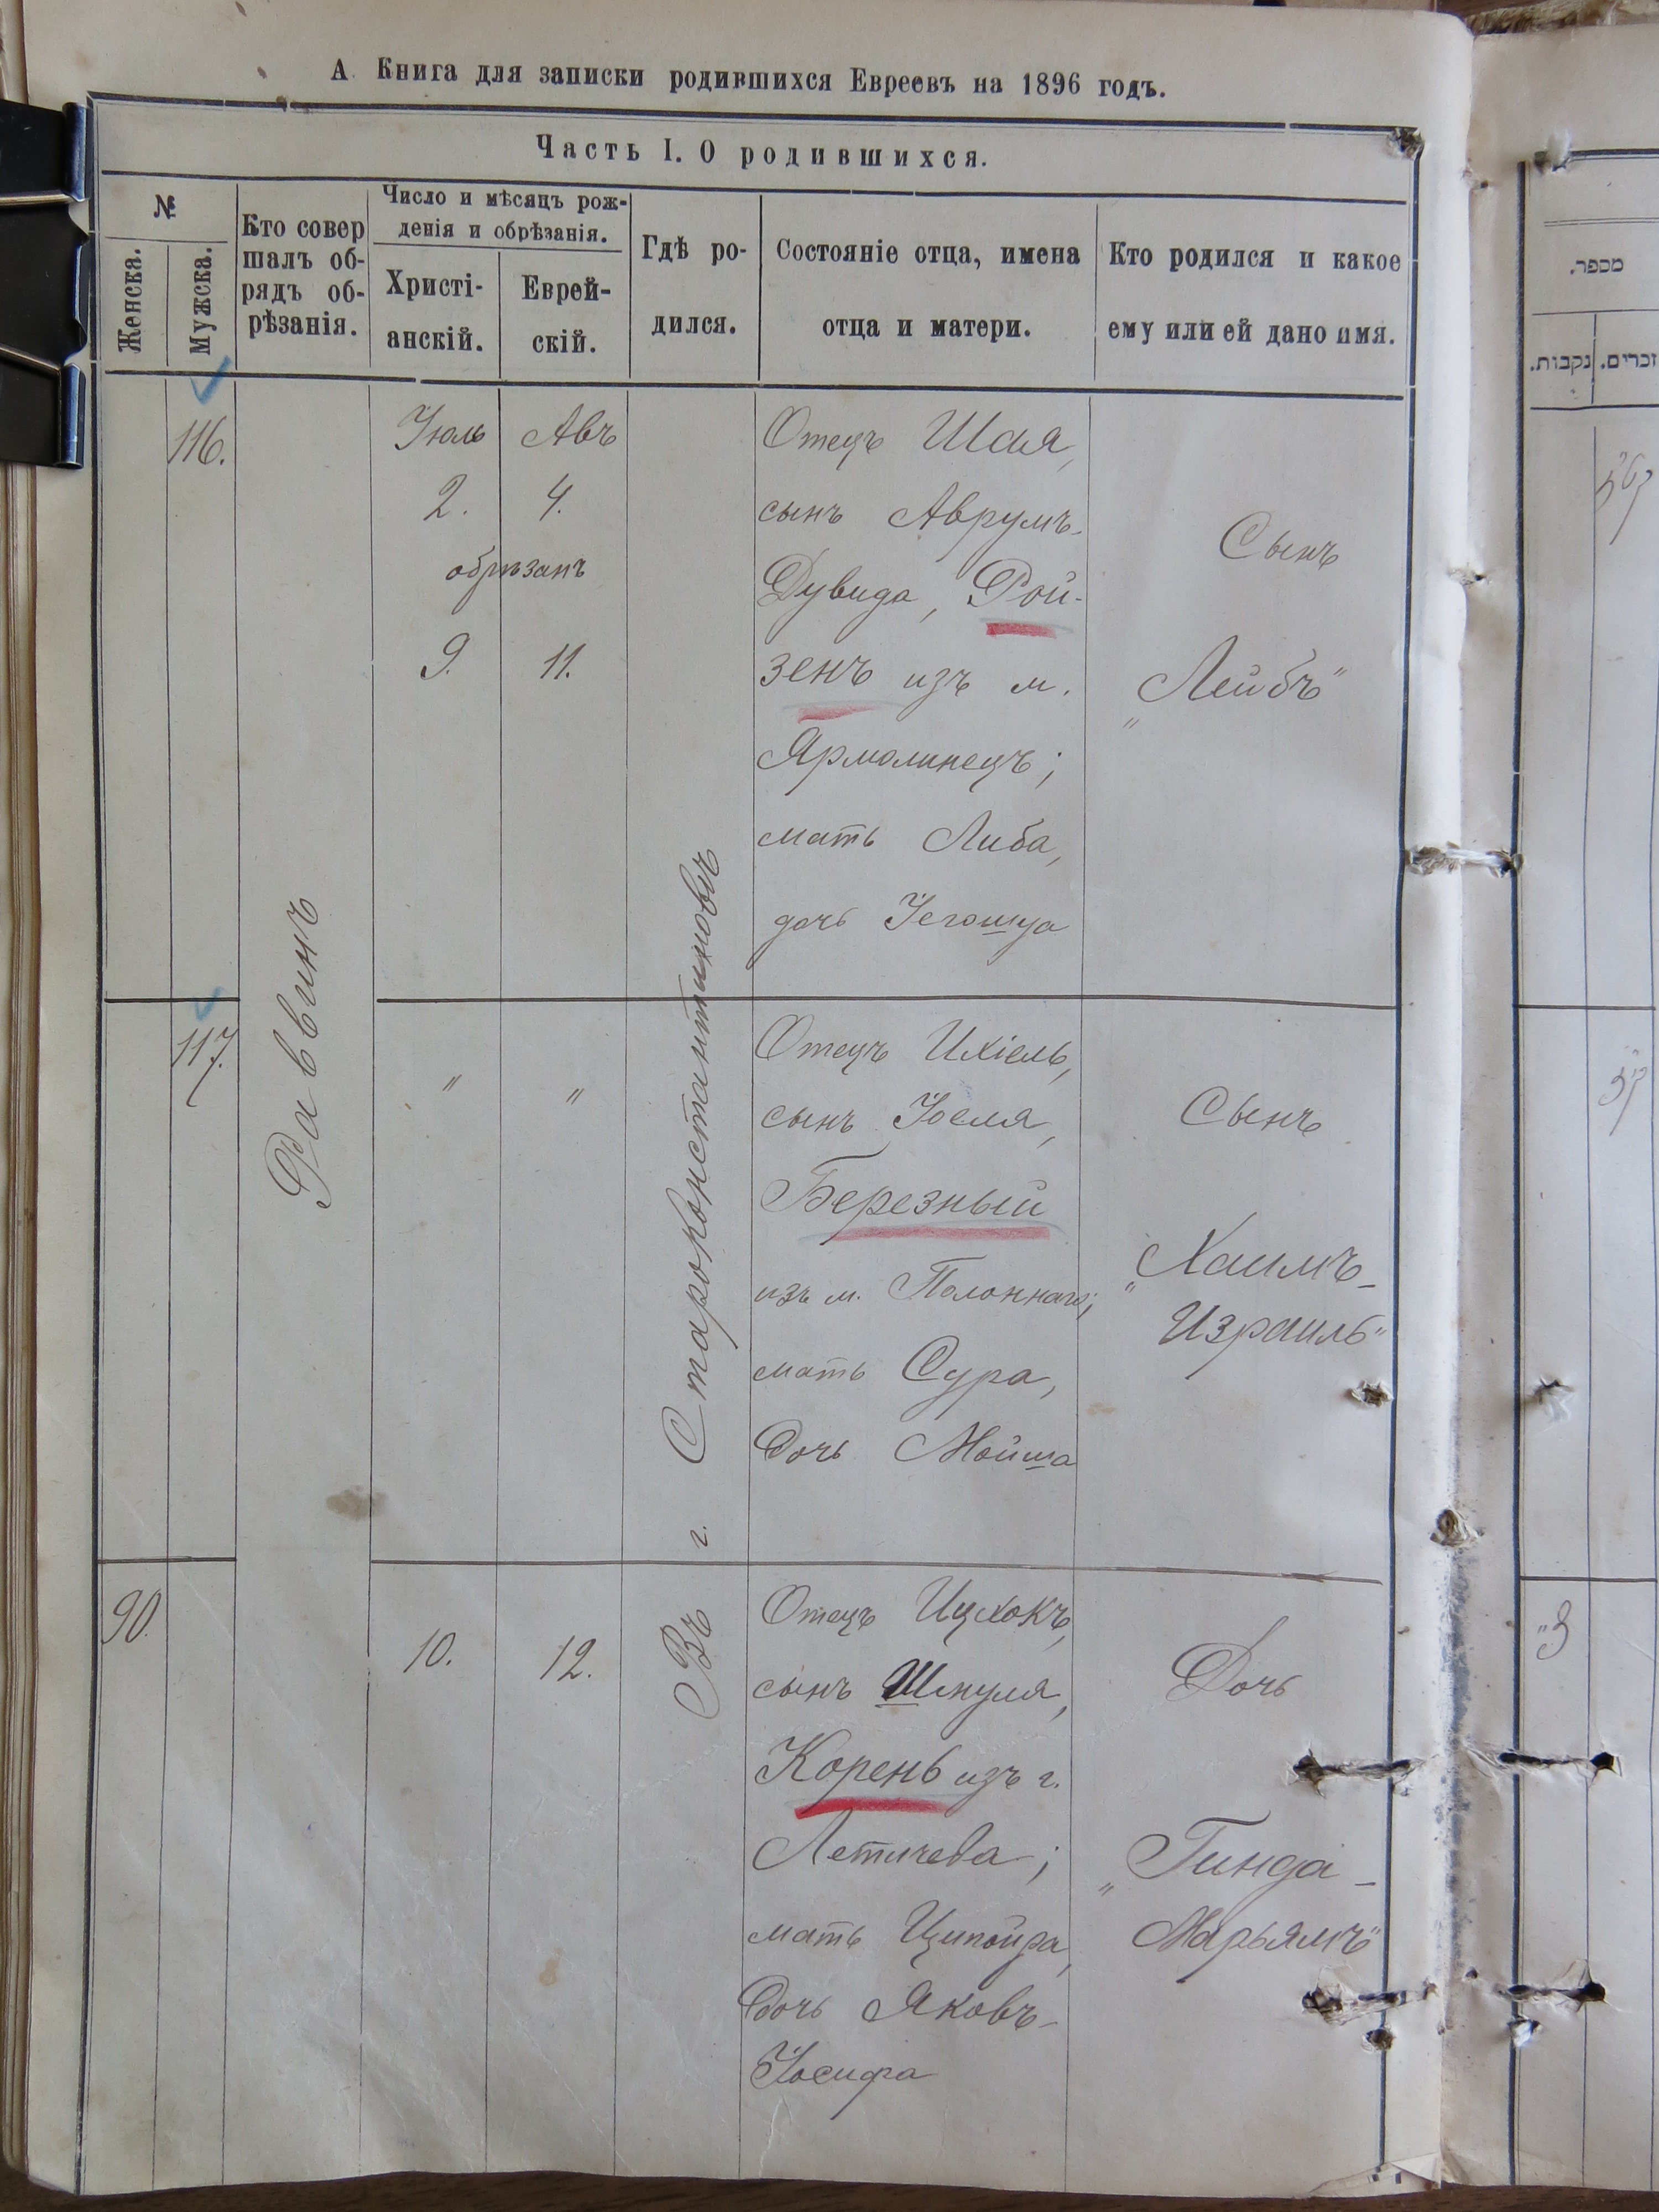 А Книга для записки родившихся Евреевъ на 1896 годъ.
Часть I. О родившихся.
№
Женска.
Мужска.
Кто совер
шалъ об-
рядъ об-
рѣзанія.
Число и мѣсяцъ рож-
денія и обрѣзанія.
Христі-
анскій.
Еврей-
скій.
Гдѣ ро-
дился.
Состояніе отца, имена
отца и матери.
Кто родился и какое
ему или ей дано имя.
Раввинъ
Въ г. Староконстантиновъ
116.
Іюль Авъ
2. 4.
обрѣзанъ
9. 11.
Отецъ Шая,
сынъ Аврумъ-
Дувида, Рой-
зенъ изъ м.
Ярмолинецъ;
мать Либа,
дочь Іегошуа
Сынъ
„Лейбъ"
117.
" "
Отецъ Ихіель,
сынъ Іоеля,
Березный
изъ м. Полоннаго;
мать Сура,
дочь Мойша
Сынъ
„Хаимъ-
Израиль"
90.
10. 12.
Отецъ Ицхокъ,
сынъ Шмуля,
Корень изъ г.
Летичева;
мать Ципойра,
дочь Яковъ-
Іосифа
Дочь
„Гинда-
Марьямъ"
מספר.
זכרים.
נקבות.